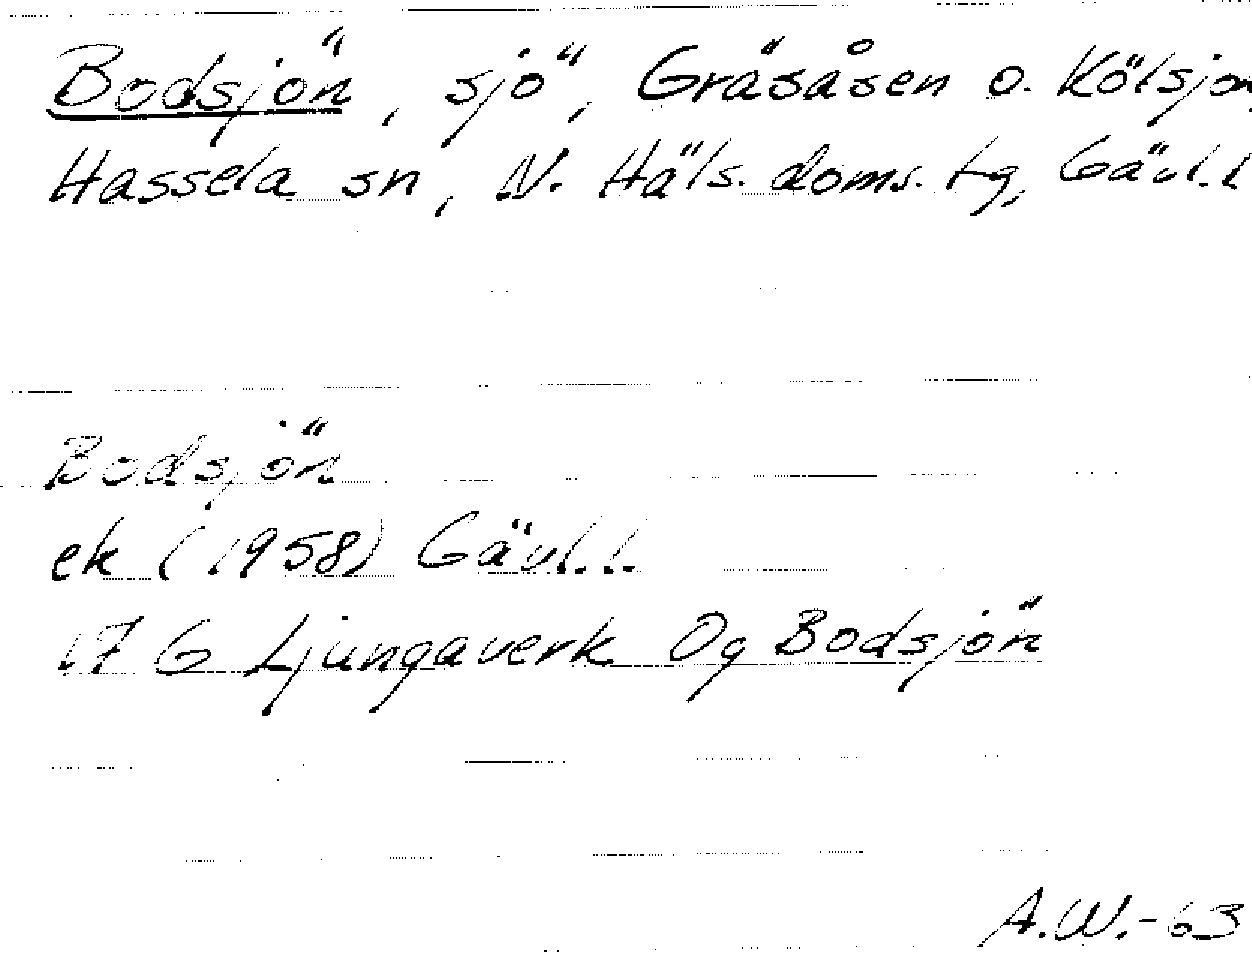 Bodsjön, sjö, Gräsåsen o. Kölsjön,
Hassela sn, N. Häls. doms. tg, Gävl.l
Bodsjön
ek (1958) Gävl.l.
17 G Ljungaverk Og Bodsjön
A.W.-63